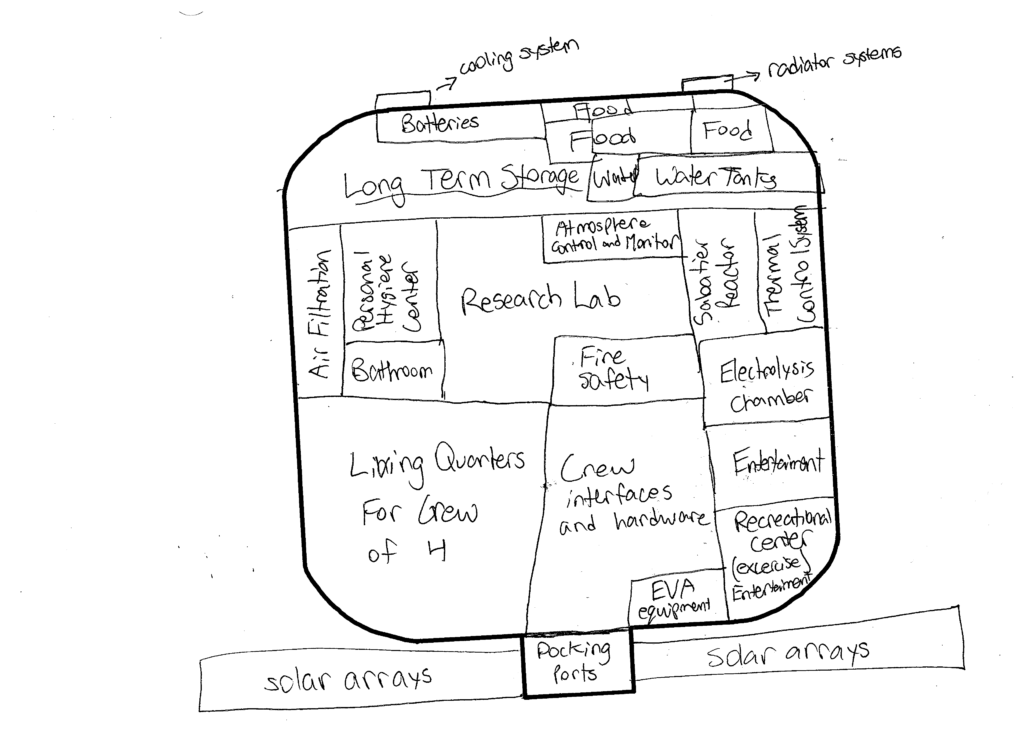 cooling system
radiator systems
Batteries
Food
Food
Food
Long Term Storage
Water
Water Tanks
Air Filtration
Personal
Hygiene
Center
Bathroom
Atmosphere
Control and Monitor
Research Lab
Sabatier
Reactor
Thermal
Control System
Fire
Safety
Electrolysis
Chamber
Living Quarters
For Crew
of 4
Crew
interfaces
and hardware
Entertaiment
Recreational
Center
(excercise)
Entertaiment
EVA
equipment
Docking
Ports
solar arrays
solar arrays